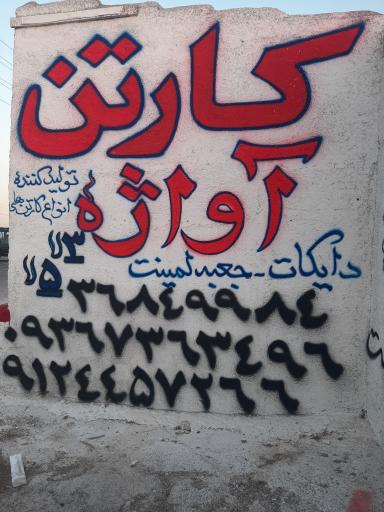 کارتن
آواژه
تولید کننده
انواع کارتن های
۳لا
۵لا
دایکات - جعبه لمینت
۳۶۸۴۹۹۸۴
۰۹۳۶۷۳۶۳۴۹۶
۰۹۱۲۴۴۵۷۲۶۶